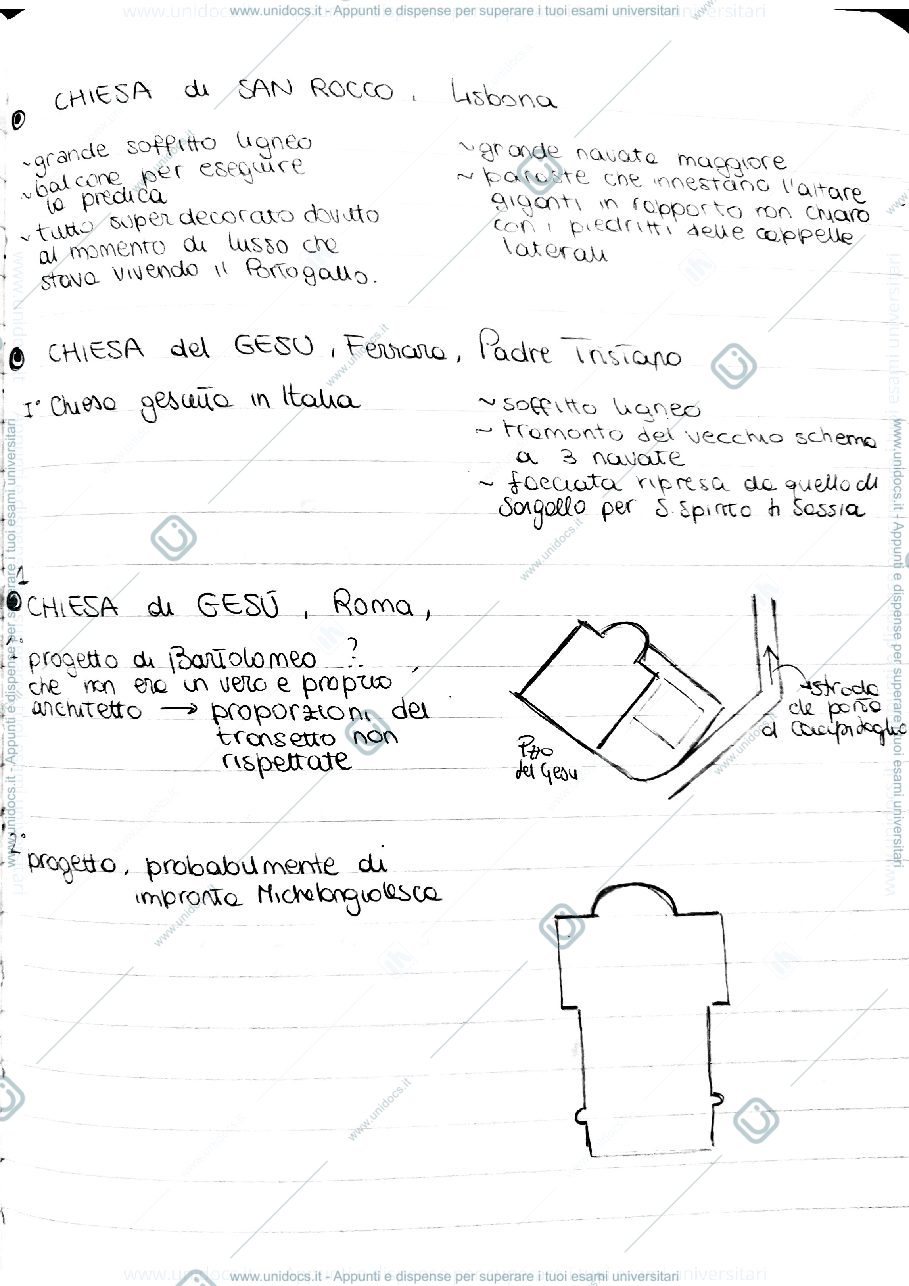 www.unidocs.it - Appunti e dispense per superare i tuoi esami universitari
CHIESA di SAN ROCCO, Lisbona
~ grande soffitto ligneo
~ balcone per eseguire
la predica
~ tutto super decorato dovuto
al momento di lusso che
stava vivendo il Portogallo.
~ grande navata maggiore
~ paraste che innestano l'altare
giganti in rapporto non chiaro
con i piedritti delle cappelle
laterali
CHIESA del GESÙ, Ferrara, Padre Tristano
I° Chiesa gesuita in Italia
~ soffitto ligneo
~ tramonto del vecchio schema
a 3 navate
~ facciata ripresa da quella di
Sangallo per S. Spirito in Sassia
1
CHIESA di GESÙ, Roma,
1°
progetto di Bartolomeo ?
che non era un vero e proprio
architetto → proporzioni del
transetto non
rispettate
P.zza
del Gesù
strada
che porta
al Campidoglio
2°
progetto, probabilmente di
impronta Michelangiolesca
www.unidocs.it - Appunti e dispense per superare i tuoi esami universitari